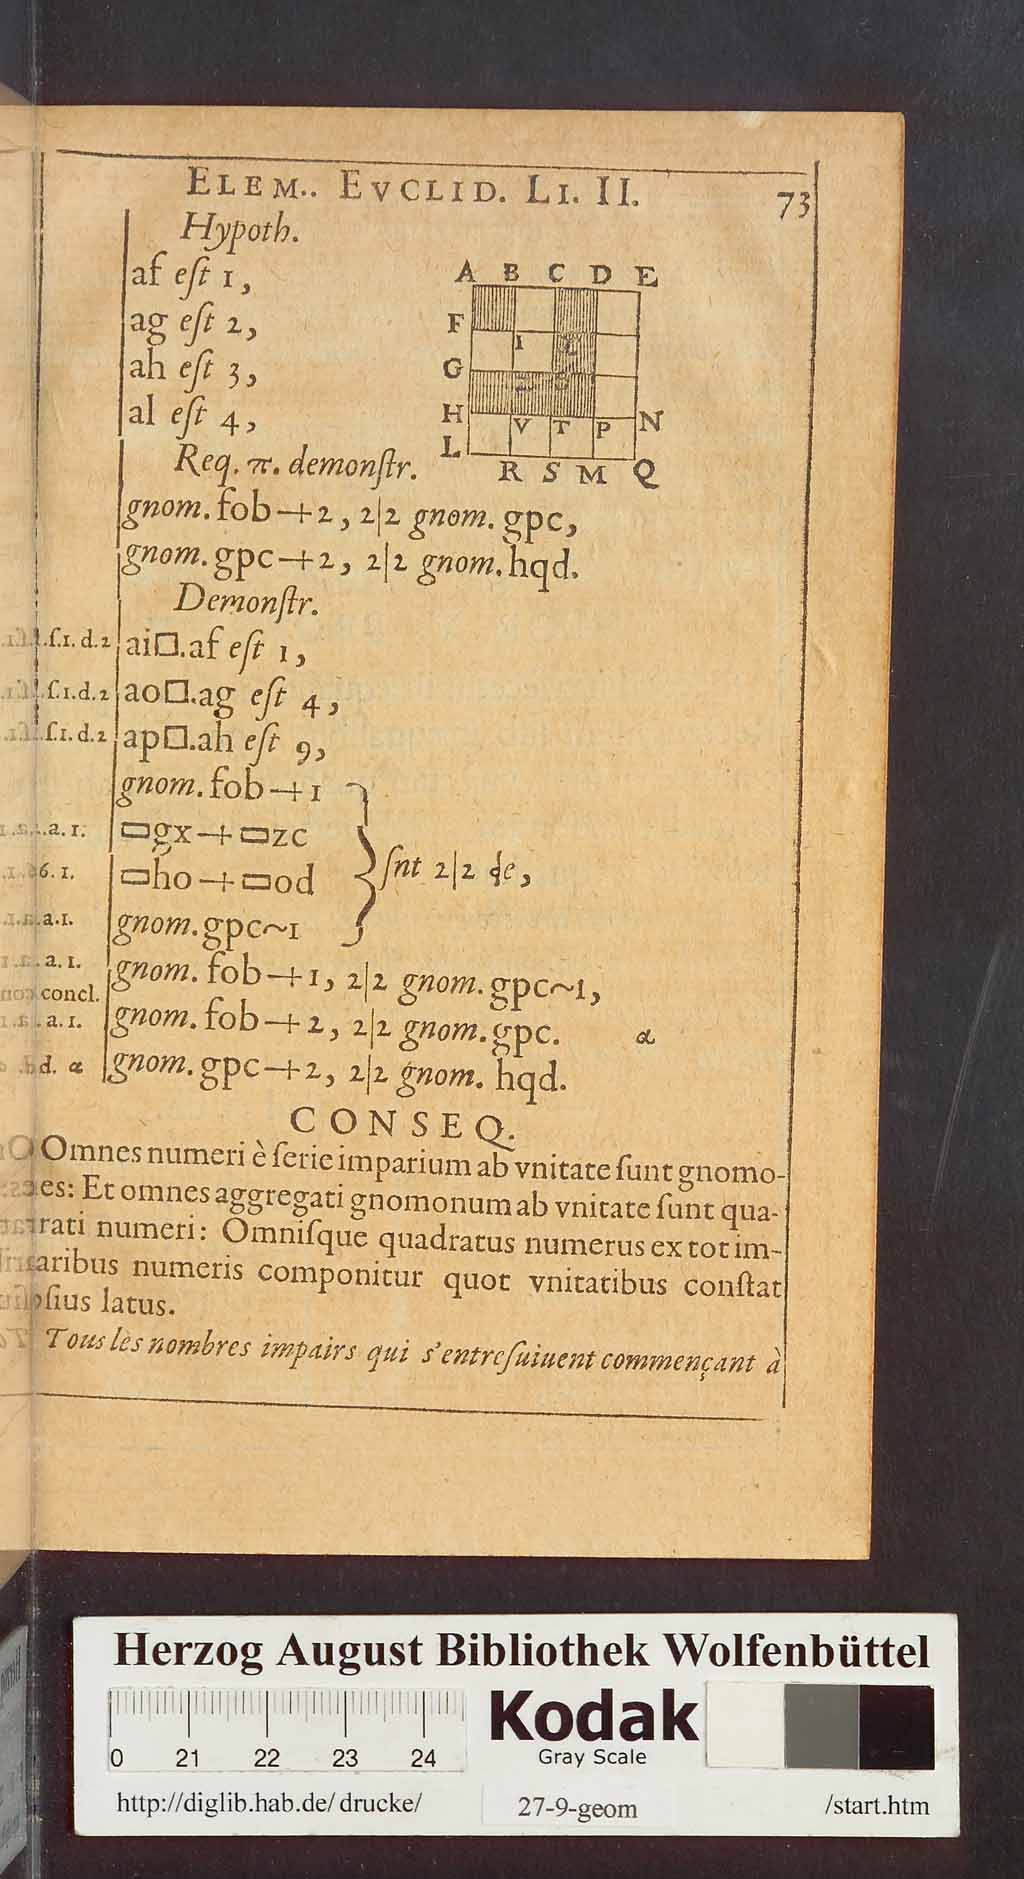 ELEM.. EVCLID. LI. II. 73
Hypoth.
af eſt 1,
ag eſt 2,
ah eſt 3,
al eſt 4,
A B C D E
F
I
G
H V T P N
L
R S M Q
Req. π. demonſtr.
gnom. fob+2, 2|2 gnom. gpc,
gnom. gpc+2, 2|2 gnom. hqd.
Demonſtr.
ſ.1. d.2 ai□.af eſt 1,
ſ.1.d.2 ao□.ag eſt 4,
ſ.1. d.2 ap□.ah eſt 9,
gnom. fob+1
a. 1. ▭gx+▭zc
6. 1. ▭ho+▭od
ſnt 2|2 de,
a.1. gnom. gpc~1
a. 1. gnom. fob+1, 2|2 gnom. gpc~1,
concl.
a. 1. gnom. fob+2, 2|2 gnom. gpc. α
d. α gnom. gpc+2, 2|2 gnom. hqd.
CONSEQ.
Omnes numeri è ſerie imparium ab vnitate ſunt gnomo-
es: Et omnes aggregati gnomonum ab vnitate ſunt qua-
rati numeri: Omniſque quadratus numerus ex tot im-
aribus numeris componitur quot vnitatibus conſtat
ſius latus.
Tous lès nombres impairs qui s'entreſuiuent commençant à
Herzog August Bibliothek Wolfenbüttel
Kodak
Gray Scale
0 21 22 23 24
http://diglib.hab.de/drucke/ 27-9-geom /start.htm